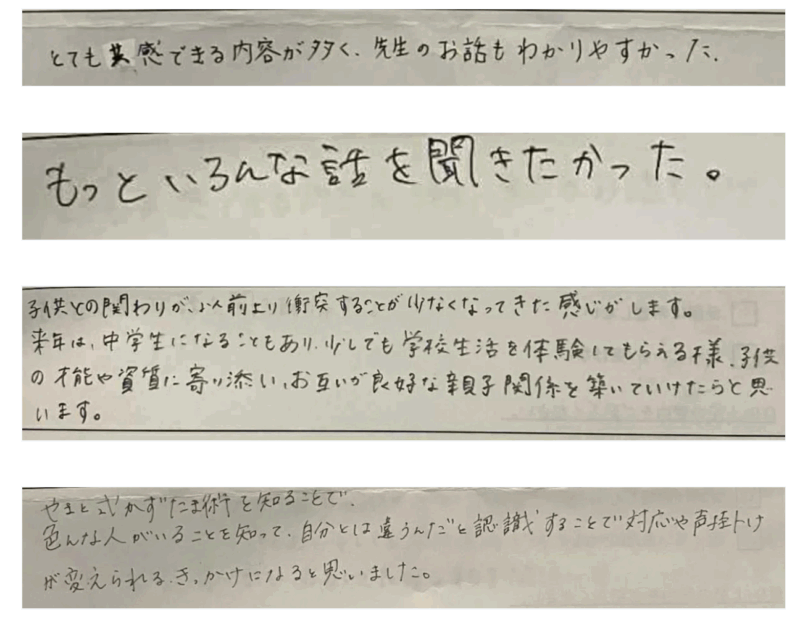 とても共感できる内容が多く、先生のお話もわかりやすかった.
もっといろんな話を聞きたかった。
子供との関わりが、以前より衝突することが少なくなってきた感じがします。
来年は、中学生になることもあり、少しでも学校生活を体験してもらえる様、子供
の才能や資質に寄り添い、お互いが良好な親子関係を築いていけたらと思
います。
やまと式かずたま術を知ることで、
色んな人がいることを知って、自分とは違うんだと認識することで対応や声掛け
が変えられる、きっかけになると思いました。